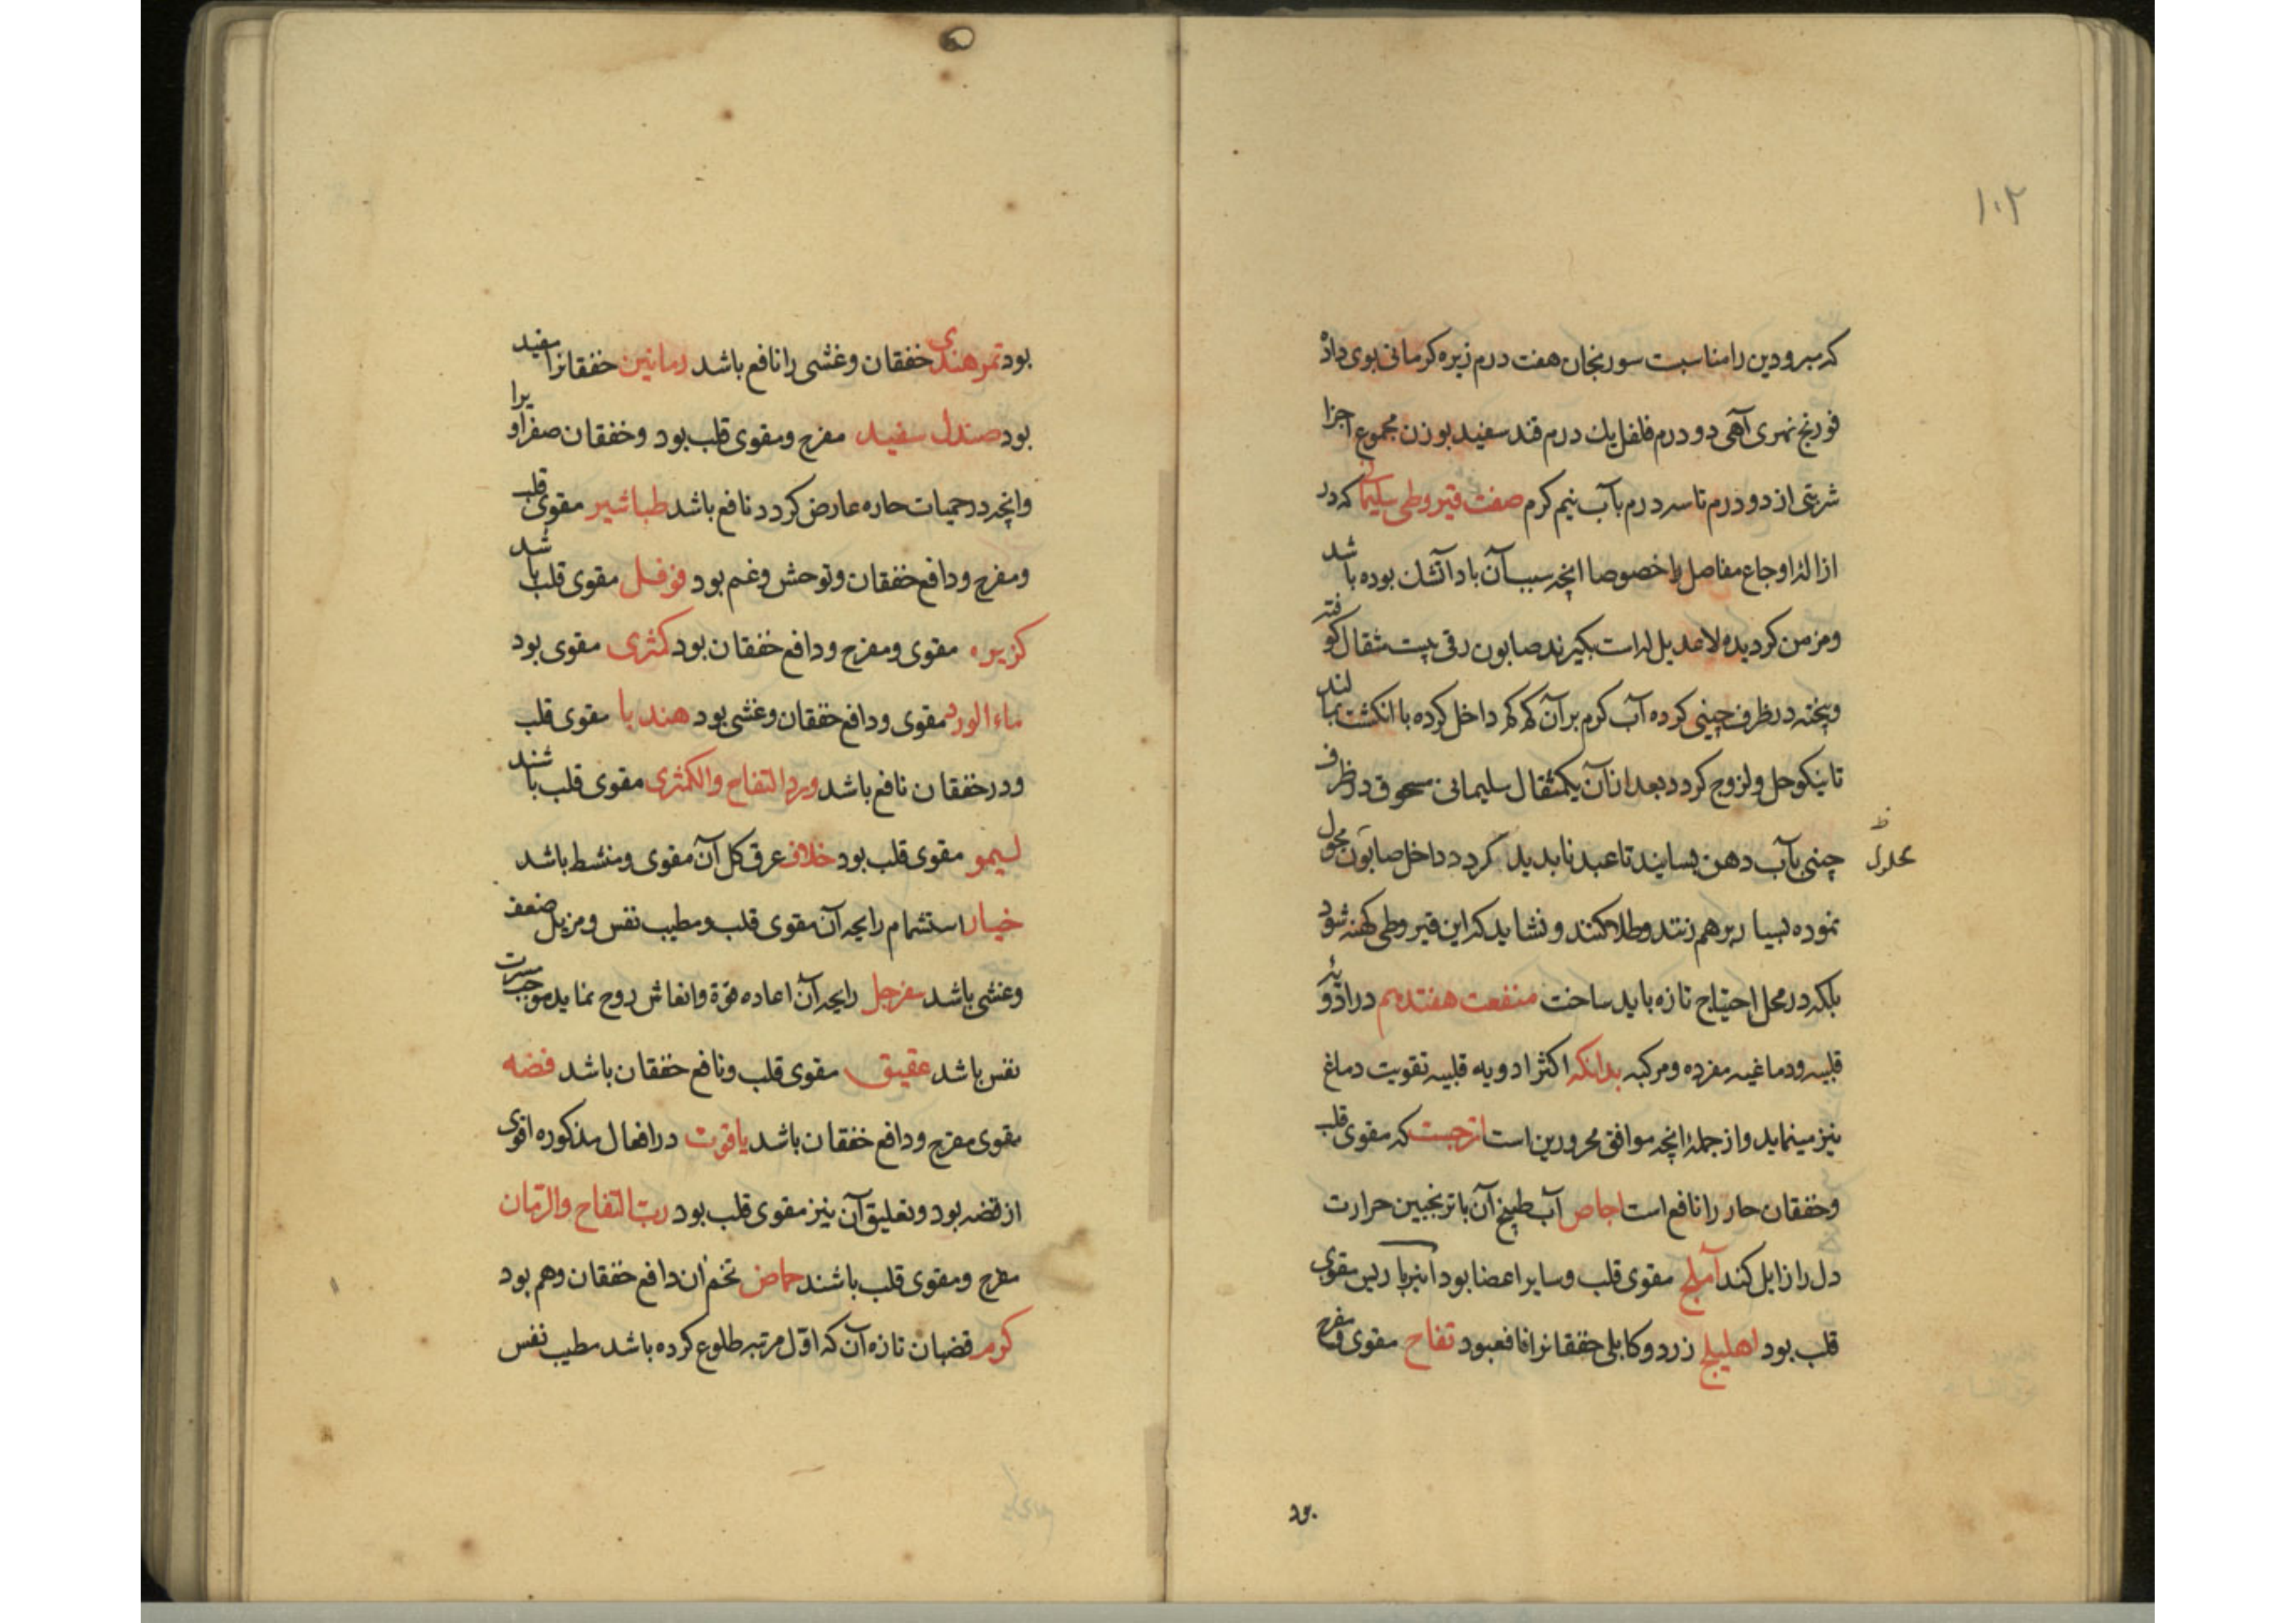 ۱۰۲
که مبرودین را مناسبت سورنجان هفت درم زیره کرمانی بوی داده
فودنج نهری آهی دو درم فلفل یك درم قند سفید بوزن مجموع اجزا
شربتی از دو درم تا سه درم بآب نیم کرم صفت قیروطی سلیمانی که در
ازاله اوجاع مفاصل را خصوصا انچه سبب آن باد آتشك بوده باشد
ومزمن کردیده ولا عدیل له است بکیرند صابون رقی بیست مثقال کوفته
وپخته در ظرف چینی کرده آب کرم بر آن کم کم داخل کرده با انکشت بمالند
تا نیکو حل ولزوج کردد بعد از آن یکمثقال سلیمانی مسحوق در ظرف
چینی بآب دهن بسایند تا عبد ناپدید کردد داخل صابون محول
محلول
نموده بسیار برهم زنند وطلا کنند و نشاید که این قیروطی کهنه شود
بلکه در محل احتیاج تازه باید ساخت منفعت هفتدهم در ادویۀ
قلبیه ودماغیه مفرده ومرکبه بدانکه اکثر ادویه قلبیه تقویت دماغ
نیز مینماید واز جملۀ انچه موافق محرورین است اترجست که مقوی قلب
وخفقان حار را نافع است اجاص آب طبیخ آن با ترنجبین حرارت
دل را زایل کند آملج مقوی قلب وسایر اعضا بود انبرباریس مقوی
قلب بود اهلیلج زرد وکابلی خفقانرا نافعبود تفاح مقوی ومفرح
بود
بود تمر هندی خفقان وغشی را نافع باشد رمانین خفقانرا مفید
بود صندل سفید مفرح ومقوی قلب بود وخفقان صفراویرا
وانچه در حمیات حاره عارض کردد نافع باشد طباشیر مقوی قلب
ومفرح ودافع خفقان وتوحش وغم بود فوفل مقوی قلب باشد
کزبره مقوی ومفرح ودافع خفقان بود کمثری مقوی بود
ماء الورد مقوی ودافع خفقان وغشی بود هندبا مقوی قلب
ودر خفقان نافع باشد ورد التفاح والکمثری مقوی قلب باشند
لیمو مقوی قلب بود خلاف عرق کل آن مقوی ومنشط باشد
خیار استشمام رایحه آن مقوی قلب ومطیب نفس ومزیل ضعف
وغشی باشد سفرجل رایحه آن اعاده قوة وانعاش روح نماید موجب مسرت
نفس باشد عقیق مقوی قلب ونافع خفقان باشد فضه
مقوی مفرح ودافع خفقان باشد یاقوت در افعال مذکوره اقوی
از فضه بود وتعلیق آن نیز مقوی قلب بود ربّ التفاح والرّمان
مفرح ومقوی قلب باشند حماض تخم ان دافع خفقان وهم بود
کرم قضبان تازه آن که اوّل مرتبه طلوع کرده باشد مطیب نفس